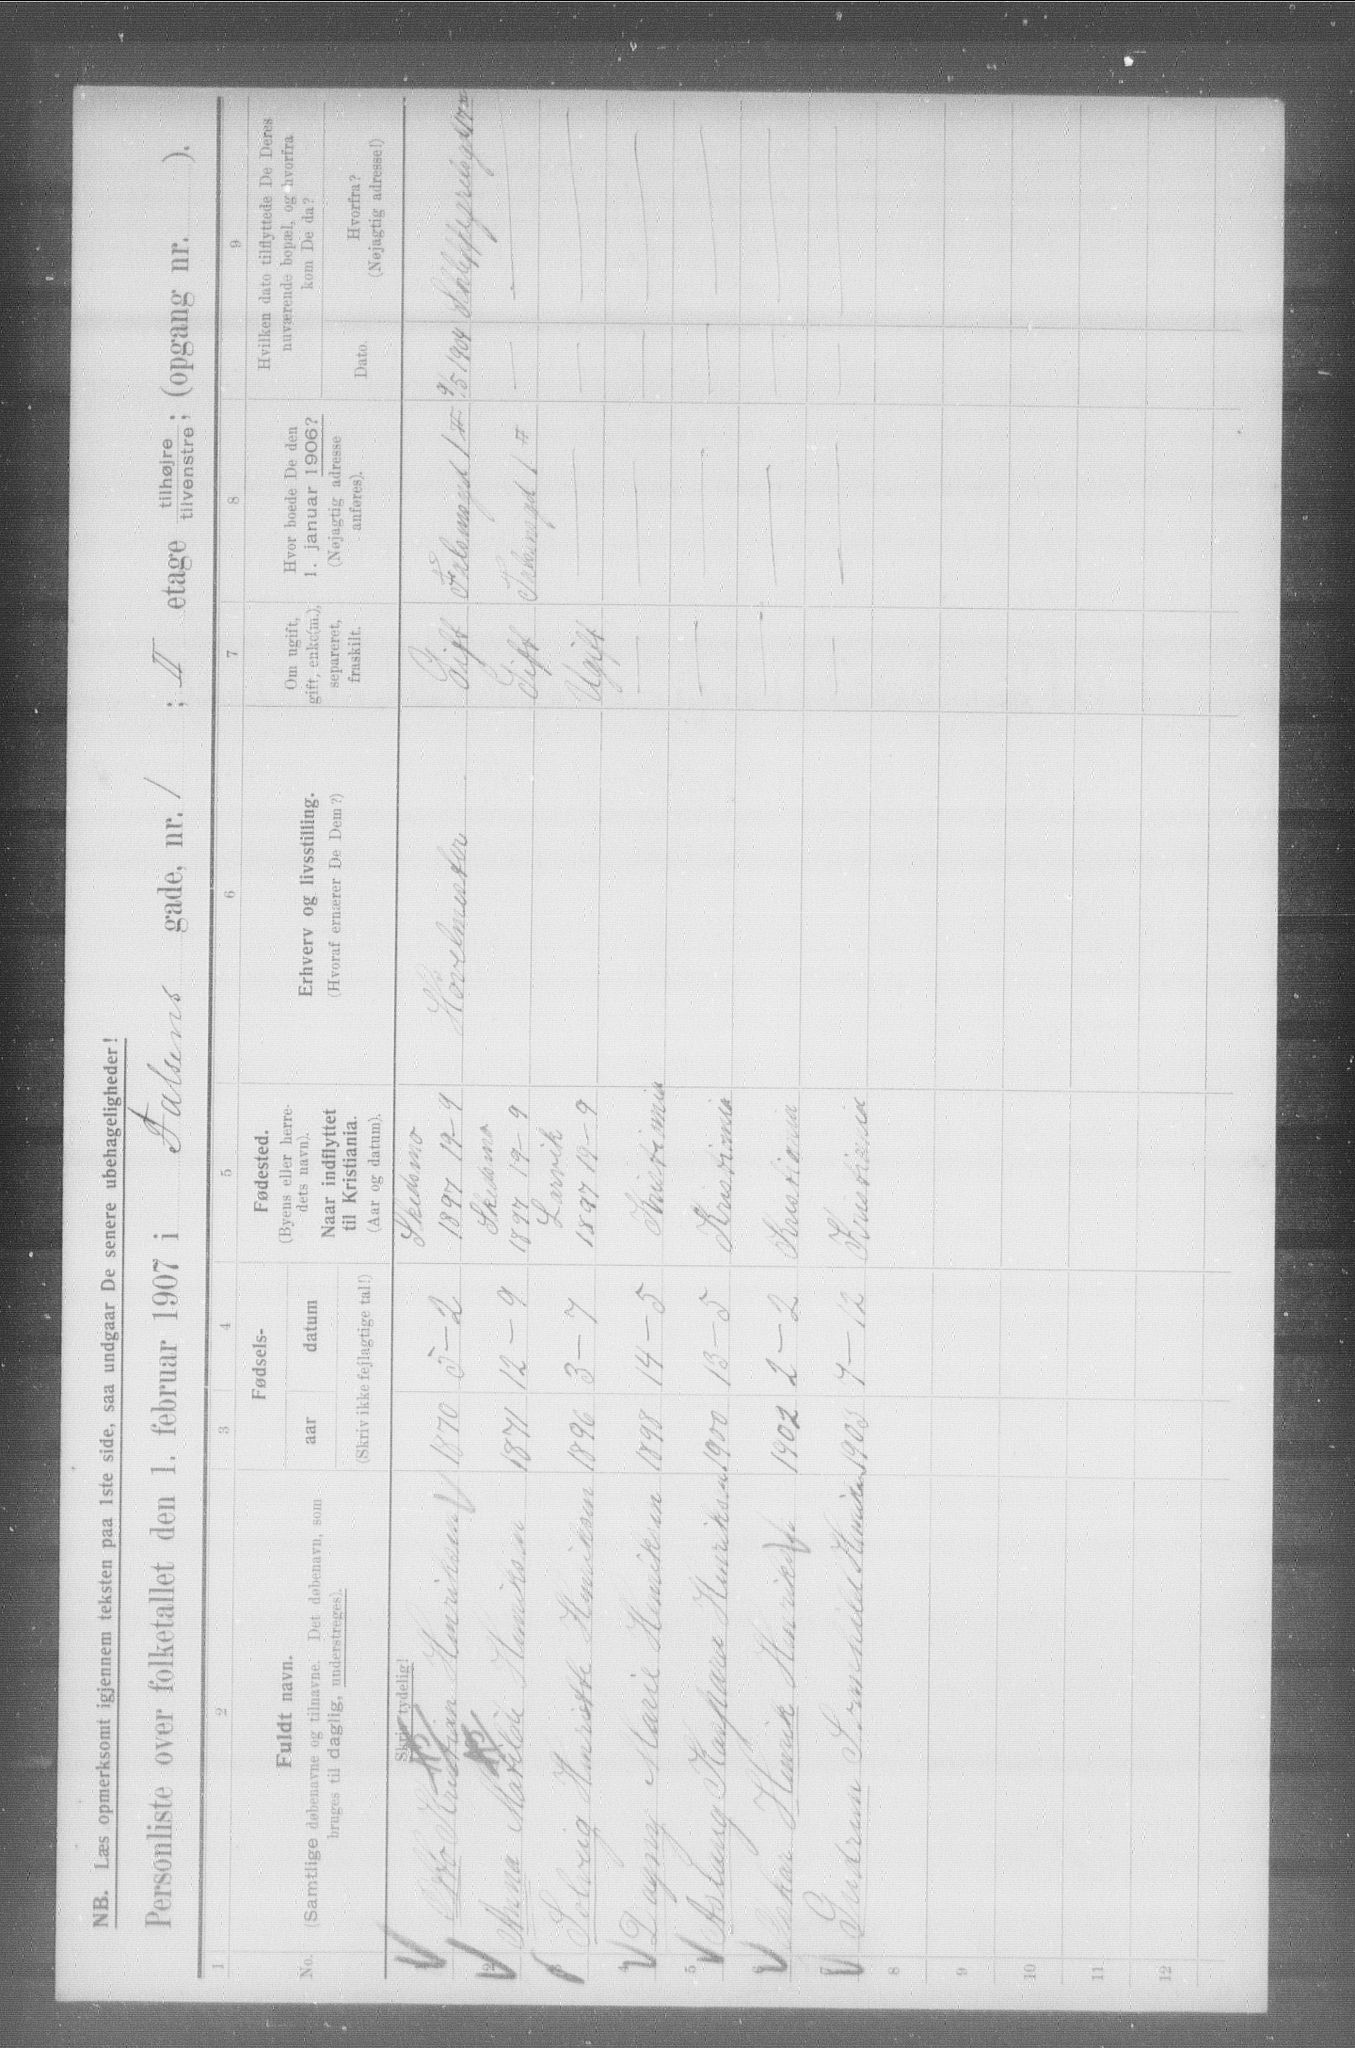 NB. Læs opmerksomt igjennem teksten paa 1ste side, saa undgaar De senere ubehageligheder!
Personliste over folketallet den 1. februar 1907 i Falsens gade, nr. 1; II etage tilhøjre tilvenstre; (opgang nr. ).
1 2 3 4 5 6 7 8 9
No.
Fuldt navn.
(Samtlige døbenavne og tilnavne. Det døbenavn, som
bruges til daglig, understreges).
Fødsels-
aar datum
(Skriv ikke fejlagtige tal!)
Fødested.
(Byens eller herre-
dets navn).
Naar indflyttet
til Kristiania.
(Aar og datum).
Erhverv og livsstilling.
(Hvoraf ernærer De Dem?)
Om ugift,
gift, enke(m.),
separeret,
fraskilt.
Hvor boede De den
1. januar 1906?
(Nøjagtig adresse
anføres).
Hvilken dato tilflyttede De Deres
nuværende bopæl, og hvorfra
kom De da?
Dato.
Hvorfra?
(Nøjagtig adresse!)
Skriv tydelig!
Skedsmo
1 Kristian Henriksen 1870 5–2 1897 19–9 Høvelmester Gift Falsensgd 1 II 9/5 1904
Skedsmo
2 Anna Matilde Henriksen 1871 12–9 1897 19–9 Gift Falsensgd 1 II — —
Larvik
3 Solveig Henriette Henriksen 1896 3–7 1897 19–9 Ugift — — —
4 Dagny Marie Henriksen 1898 14–5 Kristiania — — — —
5 Aslaug Kaspara Henriksen 1900 13–5 Kristiania — — — —
6 Oskar Henrik Henriksen 1902 2–2 Kristiania — — — —
7 Gudrun Henriksen 1903 7–12 Kristiania — — — —
8
9
10
11
12